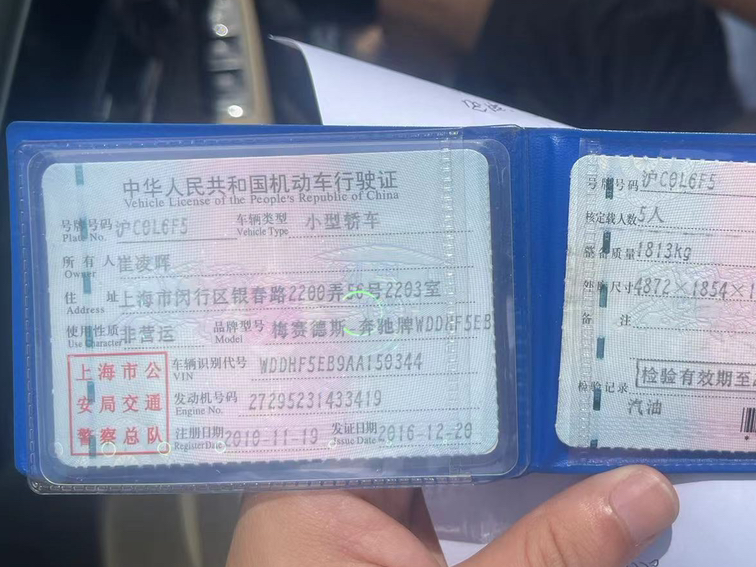 中华人民共和国机动车行驶证
Vehicle License of the People's Republic of China
号牌号码 沪C0L6F5 车辆类型 小型轿车
Plate No. Vehicle Type
所有人 崔凌晖
Owner
住址 上海市闵行区银春路2200弄56号2203室
Address
使用性质 非营运 品牌型号 梅赛德斯-奔驰牌WDDHF5EB
Use Character Model
上海市公安局交通警察总队
车辆识别代号 WDDHF5EB9AA150344
VIN
发动机号码 27295231433419
Engine No.
注册日期 2010-11-19 发证日期 2016-12-20
Register Date Issue Date
号牌号码 沪C0L6F5
核定载人数 5人
整备质量 1813kg
外廓尺寸 4872×1854×1
备注
检验记录 检验有效期至
汽油